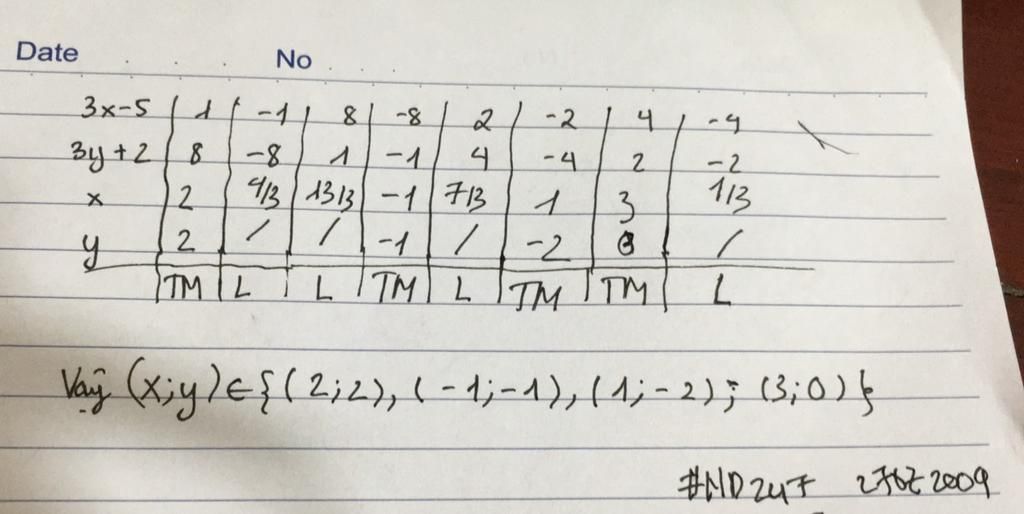 Date No
3x-5 | 1 | -1 | 8 | -8 | 2 | -2 | 4 | -4
3y+2 | 8 | -8 | 1 | -1 | 4 | -4 | 2 | -2
x | 2 | 4/3 | 13/3 | -1 | 7/3 | 1 | 3 | 1/3
y | 2 | / | / | -1 | / | -2 | 0 | /
| TM | L | L | TM | L | TM | TM | L
Vậy (x;y)∈{(2;2), (-1;-1), (1;-2); (3;0)}
#ND247 2009